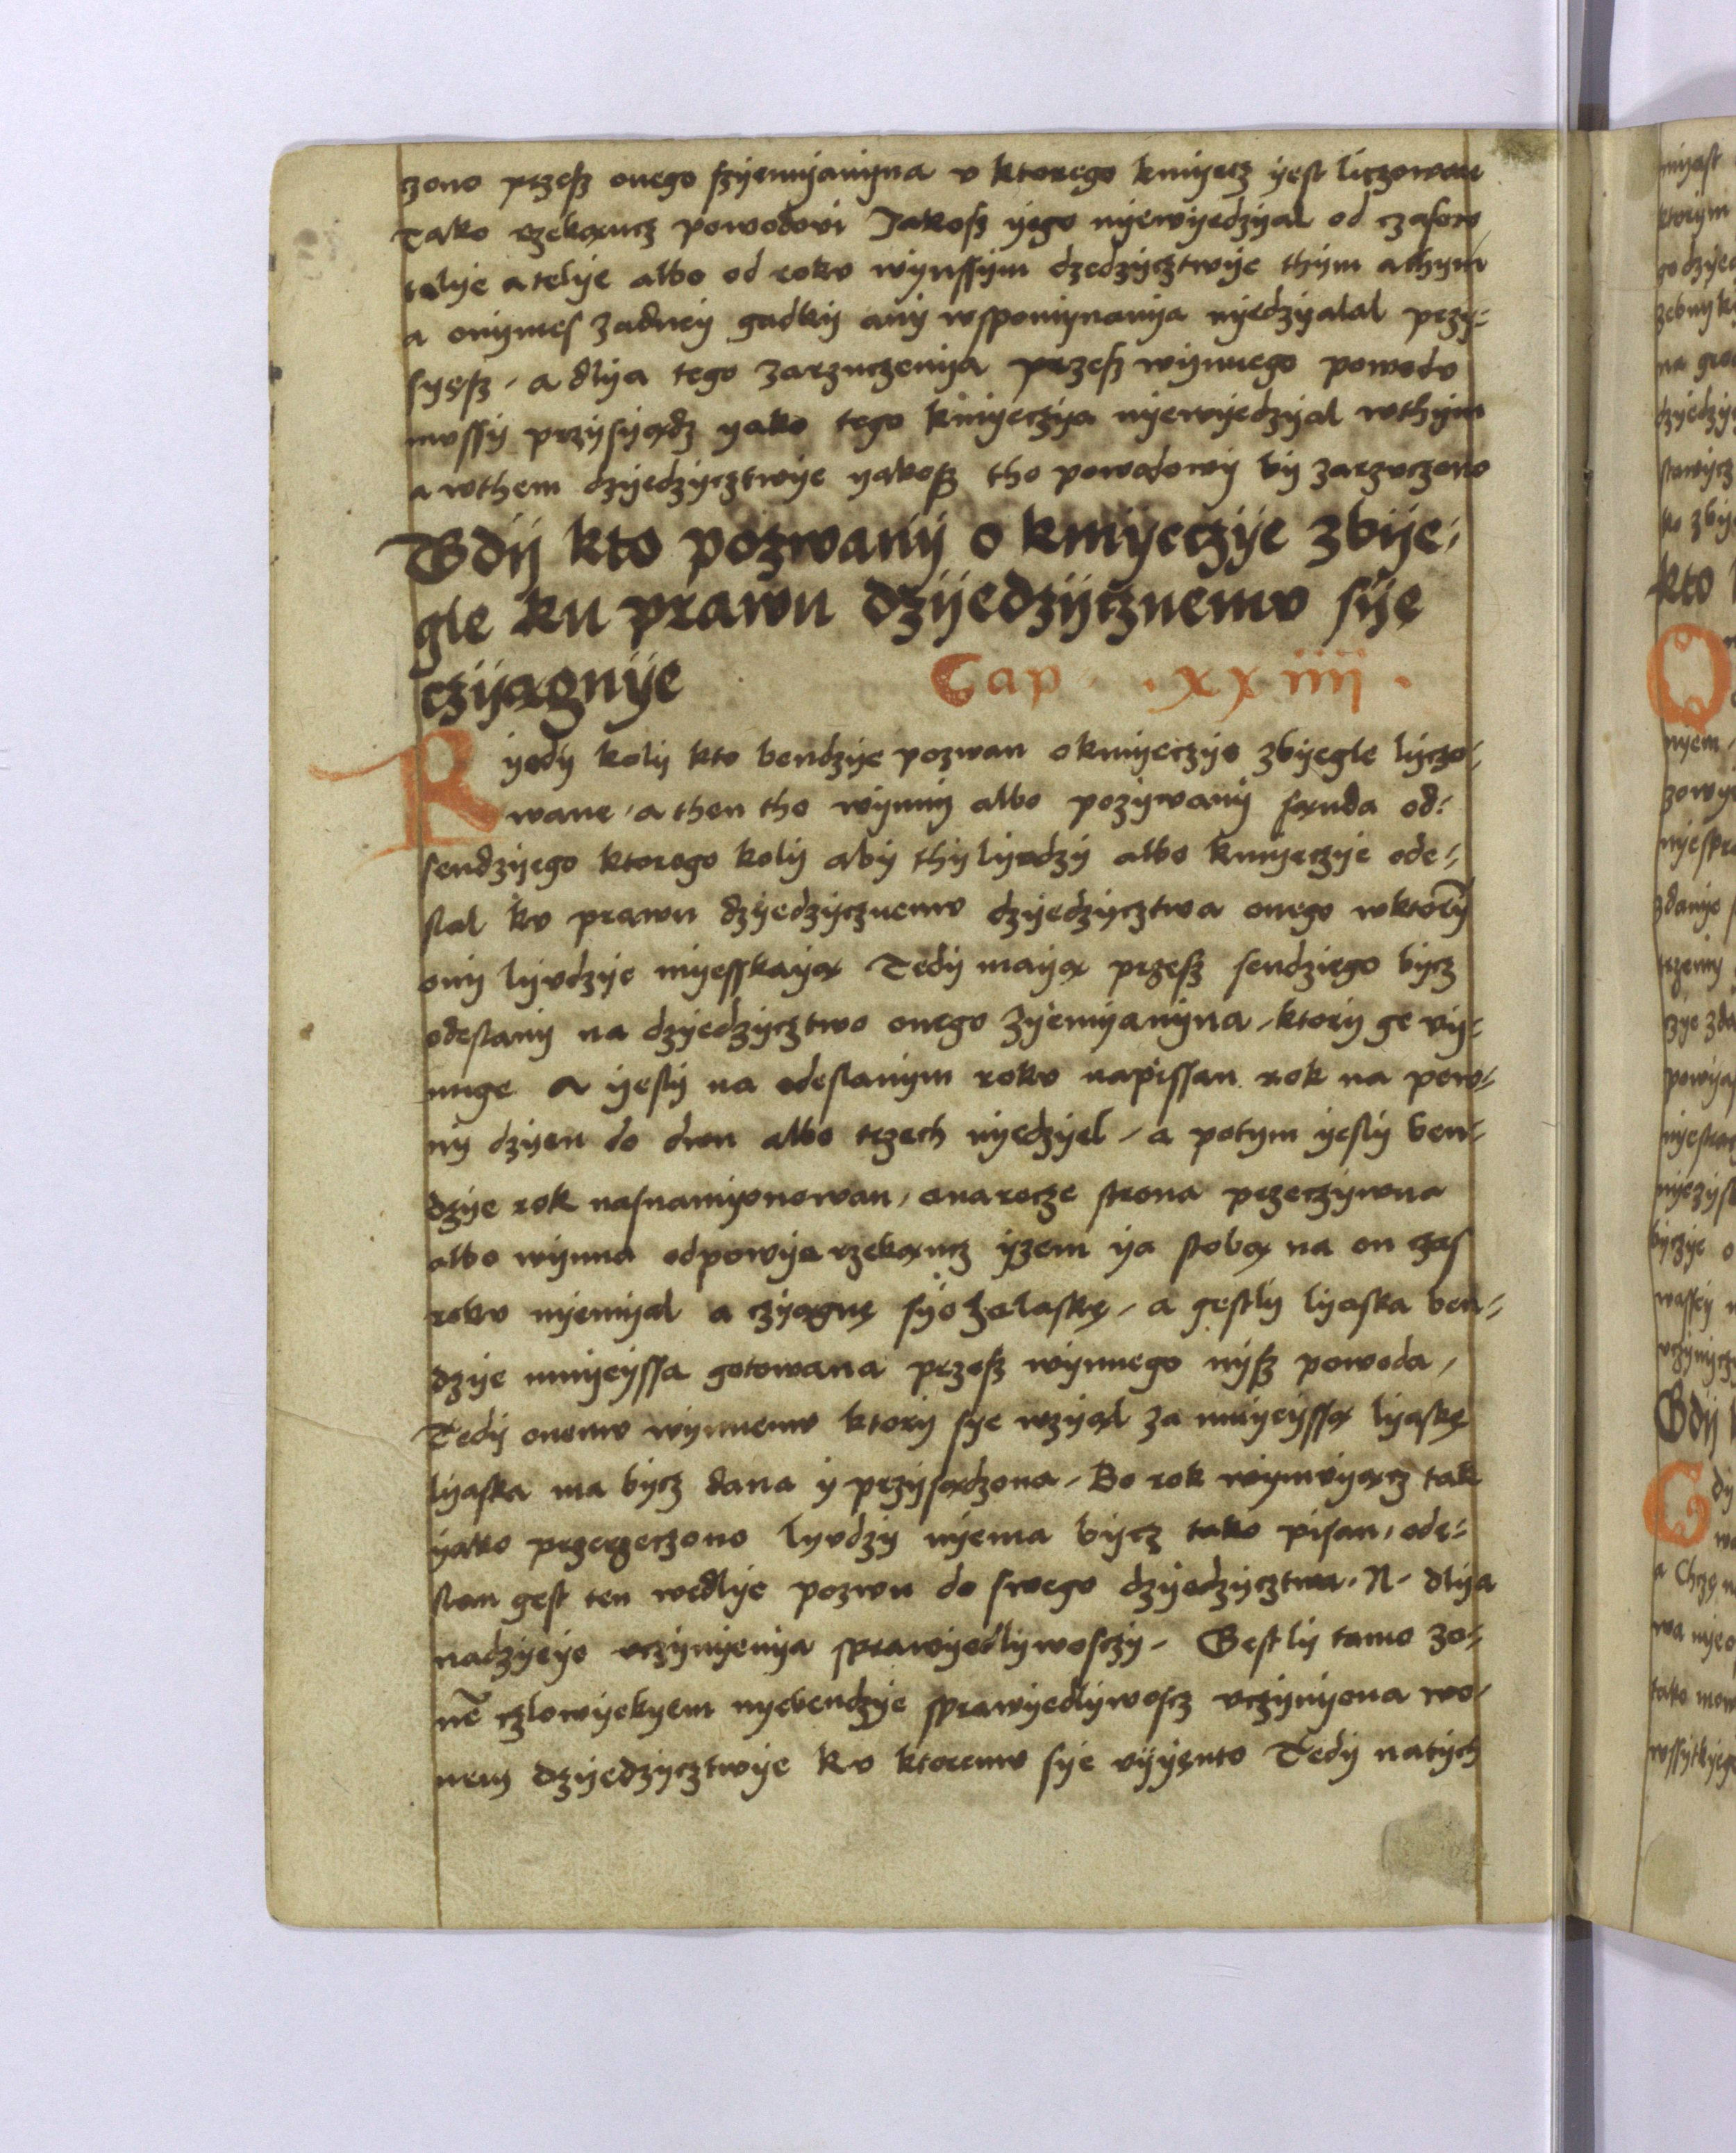 zono przesz onego szyemyanyna v ktorego kmyecz yest liczowan
Tako rzekąncz powodovi Jakosz yego nyewyedzyal od czasow
telye a telye albo od rokv wynssym dzedzycztwye thym a thym
a onymes zadney gadky any wspomynanya nyedzyalal przy-
syęsz, a dlya tego zarzuczenya przesz wynnego powodv
mvssy przysyądz yako tego kmyeczya nyewyedzyal wthym
a wthem dzyedzycztwye yakosz tho powodowy by zarzvczono
Gdy kto pozwany o kmyeczye zbye-
gle ku prawu dzyedzycznemv sye
czyągnye Cap. .xxiiii.
Kyedy koly kto bendzye pozwan o kmyeczye zbyegle lyczo-
wane, a then tho wynny albo pozywany sąnda od-
sendzyego ktorego koly aby thy lyvdzy albo kmyeczye ode-
slal kv prawu dzyedzycznemv dzyedzycztwa onego wktory
ony lyvdzye myesskayą Tedy mayą przesz sendziego bycz
odeslany na dzyedzycztwo onego zyemyanyna, ktory ge vy-
muge a yesly na odeslanym rokv napissan rok na pew-
ny dzyen do dwu albo trzech nyedzyel, a potym yesly ben-
dzye rok nasnamyonowan, onarocze strona przeczywna
albo wynna odpowye rzekąncz yzem ya stobą na on czas
rokv nyemyal a czyągnę syo zalaskę, a gestly lyaska ben-
dzye mnyeyssa gotowana przesz wynnego nysz powoda,
Tedy onemv wynnemv ktory sye wzyąl za mnyeyssą lyaskę
lyaska ma bycz dana y przysądzona, Bo rok wymvyącz tak
yako przerzeczono lyvdzy nyema bycz tako pisan, ode-
slan gest ten wedlye pozwu do swego dzyedzycztwa. N. dlya
nadzyeye vczynyenya sprawyedlywosczy. Gestly tamo zo-
nē czlowyekyem nyebendzye sprawyedlywoscz vczynyona wo-
nem dzyedzycztwye kv ktoremv sye vyyęnto Tedy natych